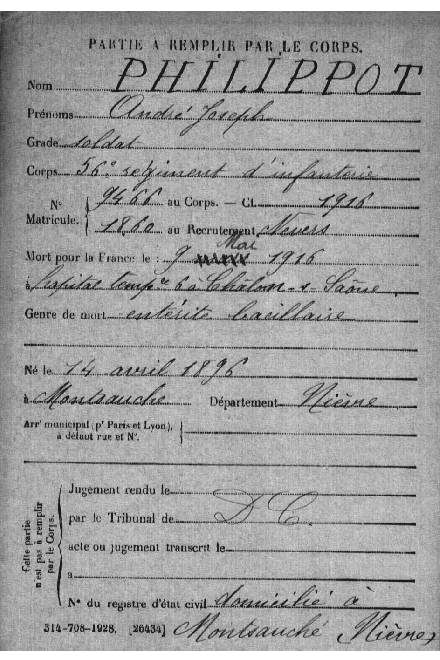 PARTIE À REMPLIR PAR LE CORPS.
Nom PHILIPPOT
Prénoms André Joseph
Grade soldat
Corps 56e régiment d'infanterie
N° Matricule. { 9466 au Corps. — Cl. 1916
1860 au Recrutement Nevers
Mai
Mort pour la France le 9 1916
à hôpital tempre 6 à Chalon-s-Saône
Genre de mort entérite bacillaire
Né le 14 avril 1896
à Montsauche Département Nièvre
Arrt municipal (pr Paris et Lyon),
à défaut rue et N°.
Cette partie n'est pas à remplir par le Corps.
Jugement rendu le
par le Tribunal de D C.
acte ou jugement transcrit le
à
N° du registre d'état civil domicilié à
514-708-1928. [26434] Montsauche Nièvre)